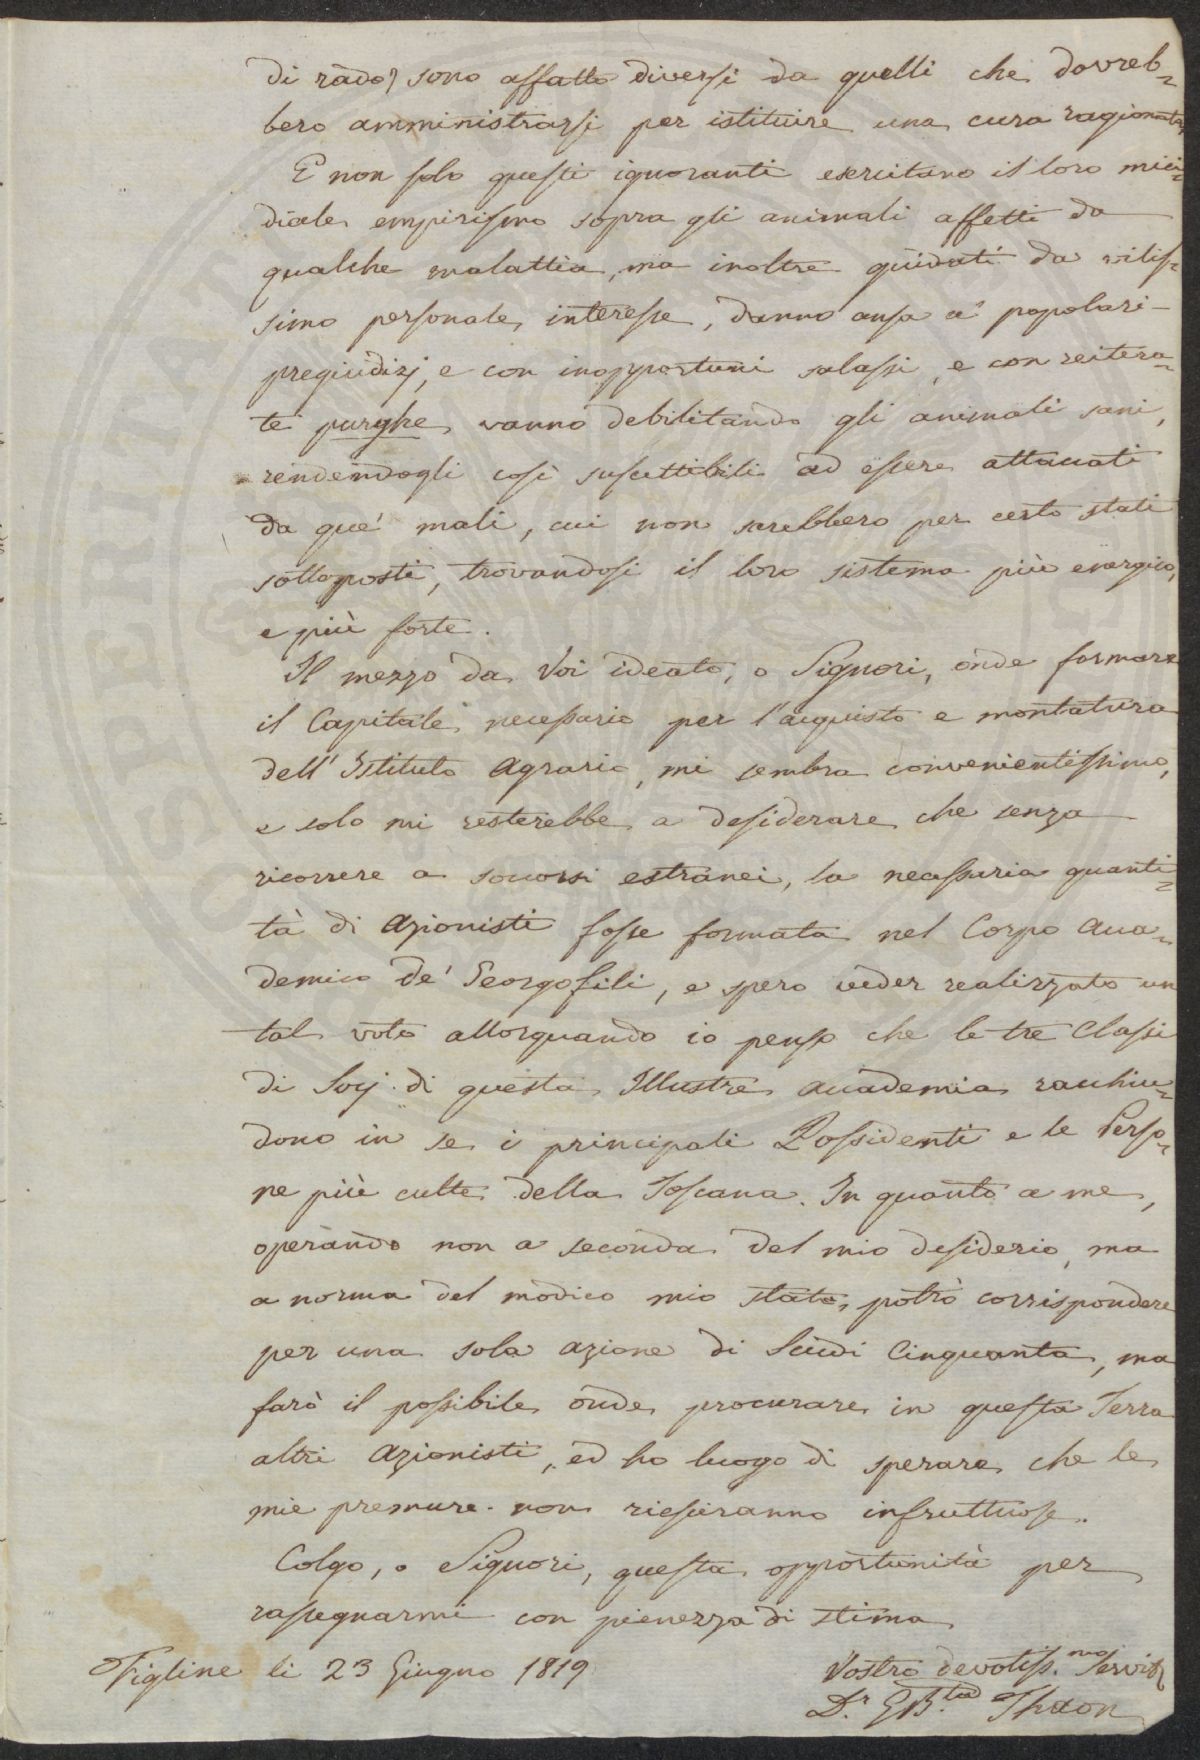 di rado) sono affatto diversi da quelli che dovreb-
bero amministrarsi per istituire una cura ragionata.
E non solo questi ignoranti esercitano il loro mici-
diale empirismo sopra gli animali affetti da
qualche malattia, ma inoltre guidati da vilis-
simo personale interesse, danno ansa a' popolari
pregiudizj, e con inopportuni salassi, e con reitera-
te purghe vanno debilitando gli animali sani,
rendendogli così suscettibili ad essere attaccati
da que' mali, cui non sarebbero per certo stati
sottoposti, trovandosi il loro sistema più energico,
e più forte.
Il mezzo da Voi ideato, o Signori, onde formare
il Capitale necessario per l'acquisto e montatura
dell'Istituto Agrario, mi sembra convenientissimo,
e solo mi resterebbe a desiderare che senza
ricorrere a soccorsi estranei, la necessaria quanti-
tà di Azionisti fosse formata nel Corpo Acca-
demico de' Georgofili, e spero veder realizzato un
tal voto allorquando io penso che le tre Classi
di Socj di questa Illustre Accademia racchiu-
dono in se i principali Possidenti e le Perso-
ne più culte della Toscana. In quanto a me,
operando non a seconda del mio desiderio, ma
a norma del modico mio stato, potrò corrispondere
per una sola azione di Scudi Cinquanta, ma
farò il possibile onde procurare in questa Terra
altri Azionisti, ed ho luogo di sperare che le
mie premure non riesciranno infruttuose.
Colgo, o Signori, questa opportunità per
rassegnarmi con pienezza di stima
Figline li 23 Giugno 1819
Vostro devotiss.mo Servit.
D.r G.B.